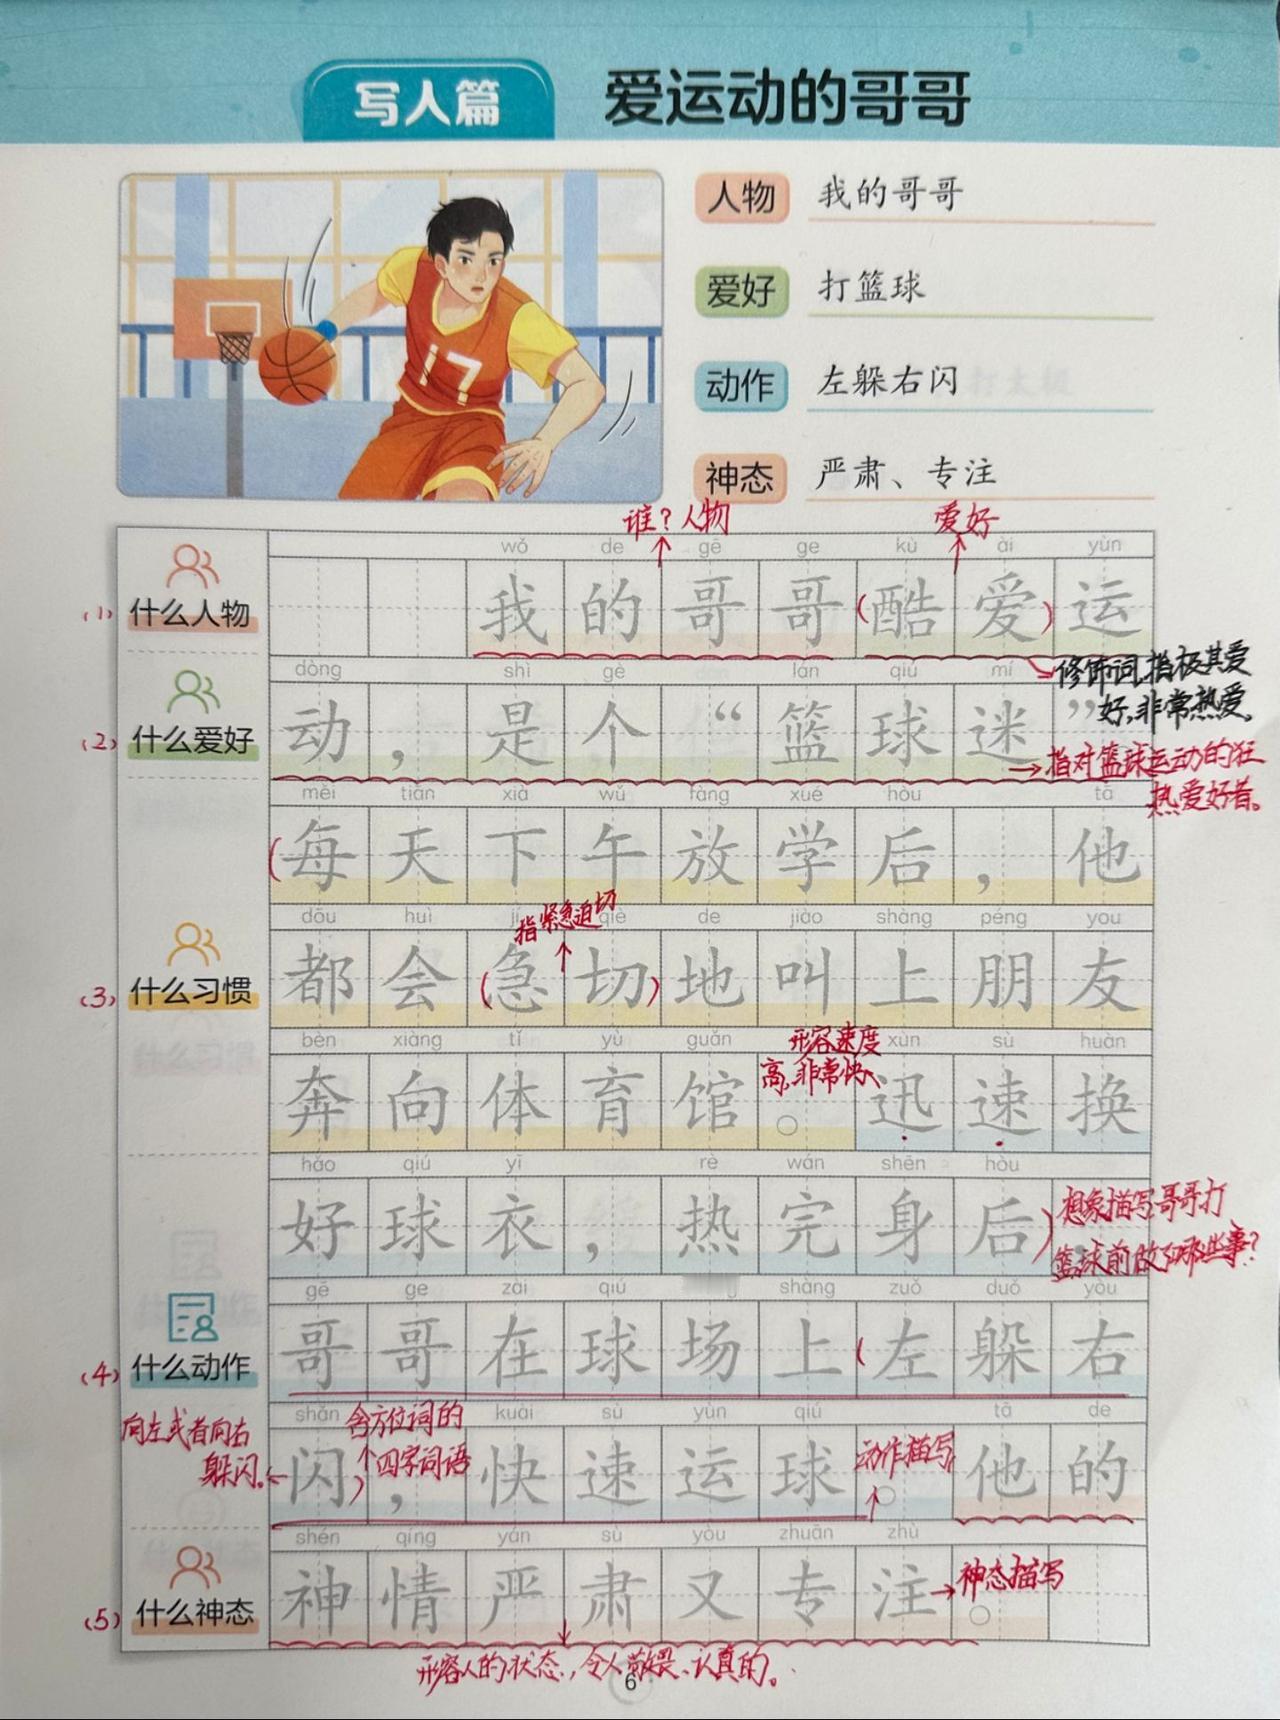 写人篇 爱运动的哥哥
17
人物 我的哥哥
爱好 打篮球
动作 左躲右闪
神态 严肃、专注
谁?人物 爱好
wǒ de gē ge kù ài yùn
(1) 什么人物 我的哥哥(酷爱)运
修饰词,指极其爱
好,非常热爱。
dòng shì gè lán qiú mí
(2) 什么爱好 动,是个“篮球迷”
指对篮球运动的狂
热爱好者。
měi tiān xià wǔ fàng xué hòu tā
(每天下午放学后,他
指紧急迫切
dōu huì jí qiè de jiào shàng péng you
(3) 什么习惯 都会(急切)地叫上朋友
形容速度
高,非常快
bēn xiàng tǐ yù guǎn xùn sù huàn
奔向体育馆。迅速换
hǎo qiú yī rè wán shēn hòu
好球衣,热完身后)
想象描写哥哥打
篮球前做了哪些事?
gē ge zài qiú shàng zuǒ duǒ yòu
(4) 什么动作 哥哥在球场上(左躲右
向左或者向右
躲闪。
含方位词的
四字词语
shǎn kuài sù yùn qiú tā de
闪),快速运球。他的
动作描写
shén qíng yán sù yòu zhuān zhù
(5) 什么神态 神情严肃又专注。
神态描写
形容人的状态,令人敬畏、认真的。
6